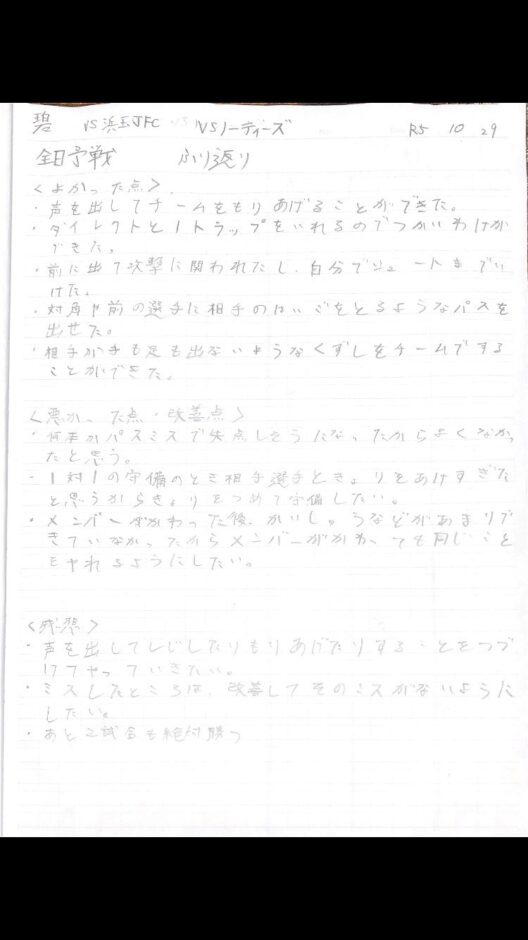 碧 VS浜玉JFC VSノーティーズ R5 10 29
全日予戦 ふり返り
<よかった点>
・声を出してチームをもりあげることができた。
・ダイレクトと1トラップをいれるのでつかいわけが
できた。
・前に出て攻撃に関われたし、自分でシュートまでい
けた。
・対角や前の選手に相手のはいごをとるようなパスを
出せた。
・相手が手も足も出ないようなくずしをチームでする
ことができた。
<悪かった点・改善点>
・何本かパスミスで失点しそうになったからよくなかっ
たと思う。
・1対1の守備のとき相手選手ときょりをあけすぎた
と思うからきょりをつめて守備したい。
・メンバーがかわった後、かいしゅうなどがあまりで
きていなかったからメンバーがかわっても同じこと
をやれるようにしたい。
<感想>
・声を出してしじしたりもりあげたりすることをつづ
けてやっていきたい。
・ミスしたところは、改善してそのミスがないように
したい。
・あと2試合も絶対勝つ